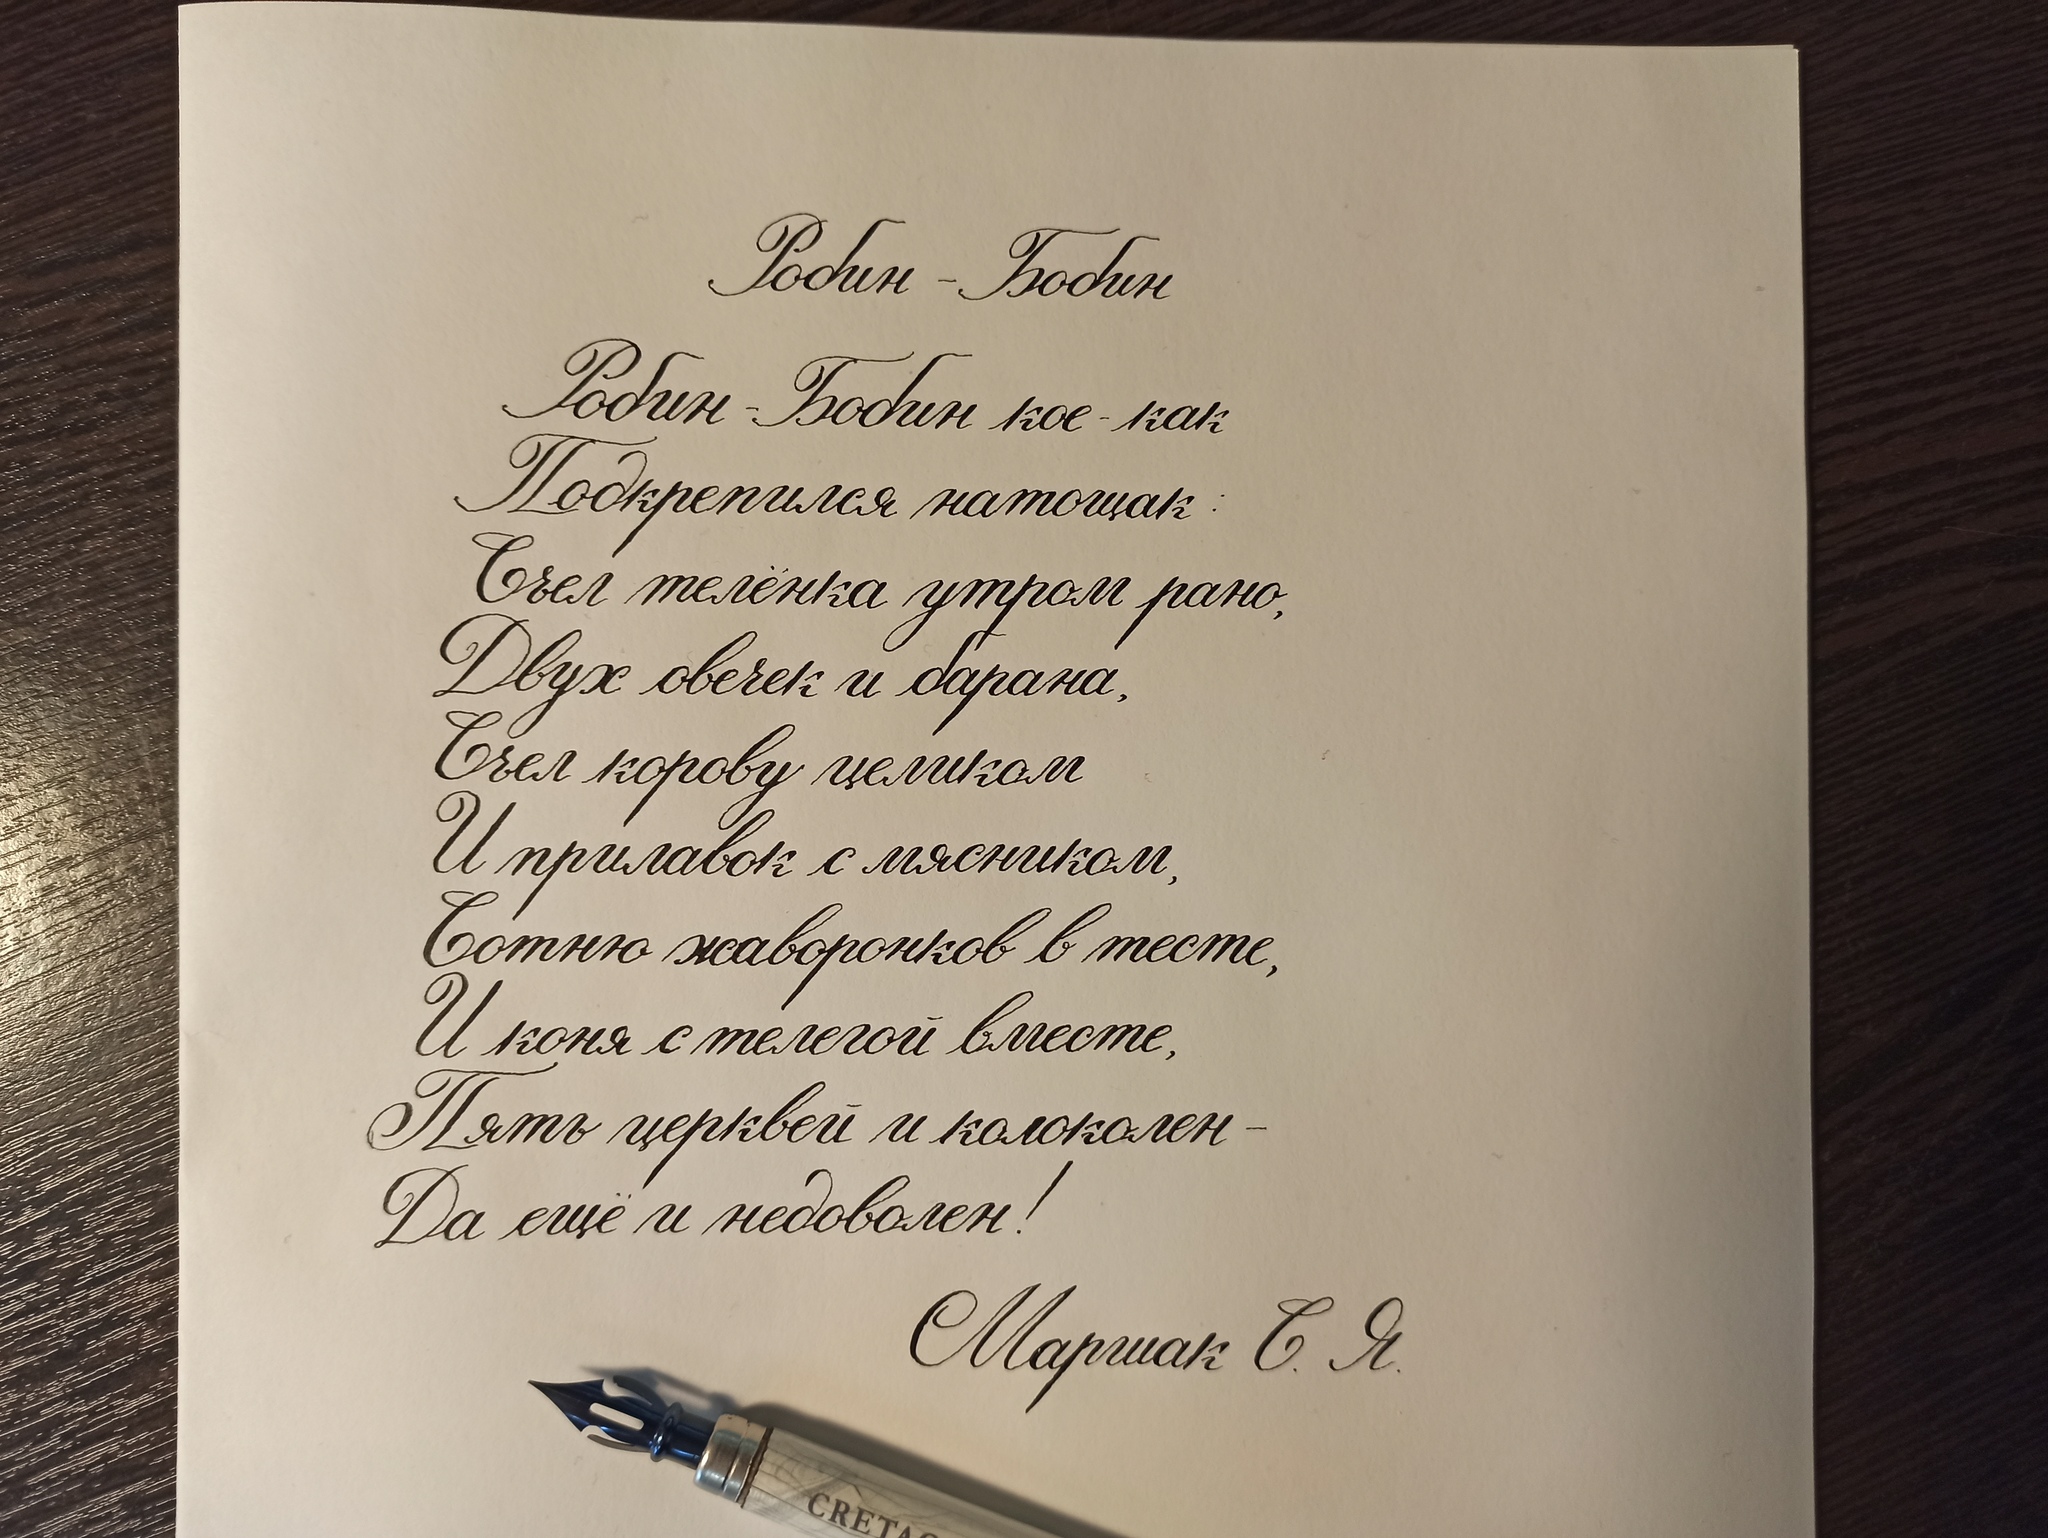 Робин - Бобин
Робин - Бобин кое - как
Подкрепился натощак :
Съел телёнка утром рано,
Двух овечек и барана,
Съел корову целиком
И прилавок с мясником,
Сотню жаворонков в тесте,
И коня с телегой вместе,
Пять церквей и колоколен -
Да ещё и недоволен!
Маршак С. Я.